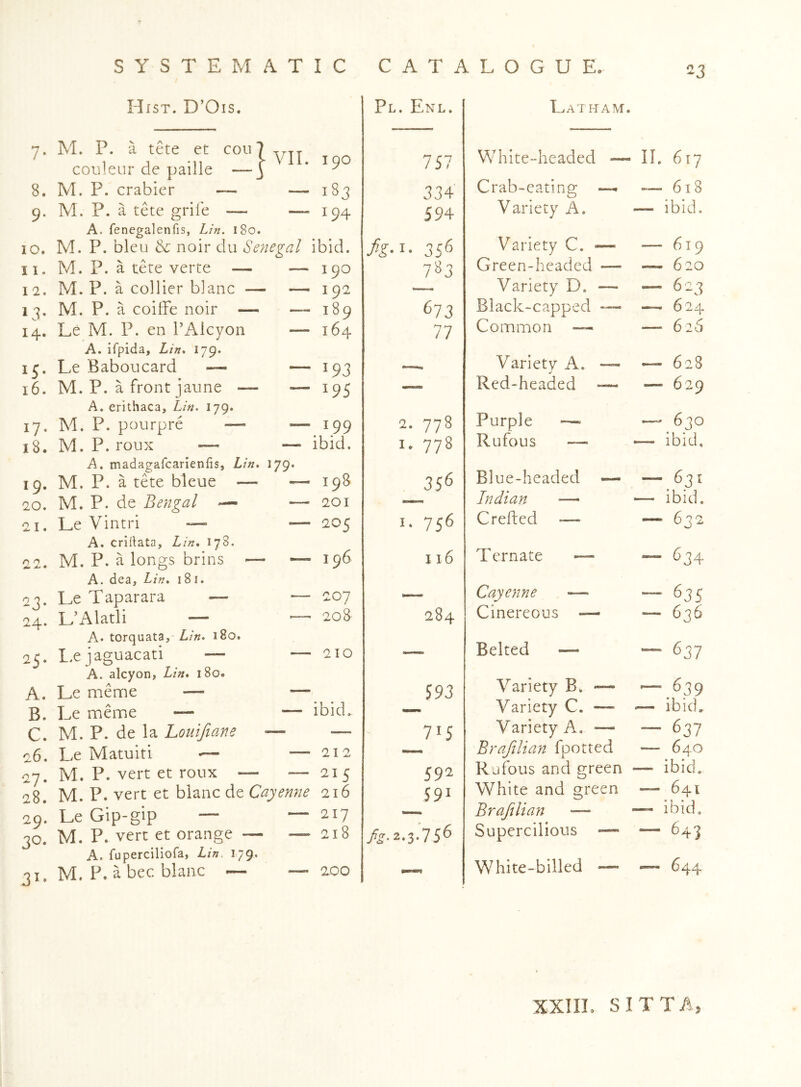 SYSTEMATIC CATALOGUE. 23
HIST. D'OIS. PL. ENL. LATHAM.
7. M. P. à tête et cou } VII. 190 757 White-headed — II. 617
couleur de paille — }
8. M. P. crabier — — 183 334 Crab-eating — — 618
9. M. P. à tête grise — — 194 594 Variety A. — ibid.
A. senegalensis, Lin. 180.
10. M. P. bleu & noir du Senegal ibid. fig. 1. 356 Variety C. — — 619
11. M. P. à tête verte — — 190 783 Green-headed — — 620
12. M. P. à collier blanc — — 192 — Variety D. — — 623
13. M. P. à coiffe noir — — 189 673 Black-capped — — 624
14. Le M. P. en l'Alcyon — 164 77 Common — — 626
A. ispida, Lin. 179.
15. Le Baboucard — — 193 — Variety A. — — 628
16. M. P. à front jaune — — 195 — Red-headed — — 629
A. erithaca, Lin. 179.
17. M. P. pourpré — — 199 2. 778 Purple — — 630
18. M. P. roux — — ibid. 1. 778 Rufous — — ibid.
A. madagascariensis, Lin. 179.
19. M. P. à tête bleue — — 198 356 Blue-headed — — 631
20. M. P. de Bengal — — 201 — Indian — — ibid.
21. Le Vintri — — 205 1. 756 Crested — — 632
A. cristata, Lin. 178.
22. M. P. à longs brins — — 196 116 Ternate — — 634
A. dea, Lin. 181.
23. Le Taparara — — 207 — Cayenne — — 635
24. L'Alatli — — 208 284 Cinereous — — 636
A. torquata, Lin. 180.
25. Le jaguacati — — 210 — Belted — — 637
A. alcyon, Lin. 180.
A. Le même — — 593 Variety B. — — 639
B. Le même — — ibid. — Variety C. — — ibid.
C. M. P. de la Louisiane — — 715 Variety A. — — 637
26. Le Matuiti — — 212 — Brasilian spotted — 640
27. M. P. vert et roux — — 215 592 Rufous and green — ibid.
28. M. P. vert et blanc de Cayenne 216 591 White and green — 641
29. Le Gip-gip — — 217 — Brasilian — — ibid.
30. M. P. vert et orange — — 218 fig. 2.3.756 Supercilious — — 643
A. superciliosa, Lin. 179.
31. M. P. à bec blanc — — 200 — White-billed — — 644
XXIII. SITTA,